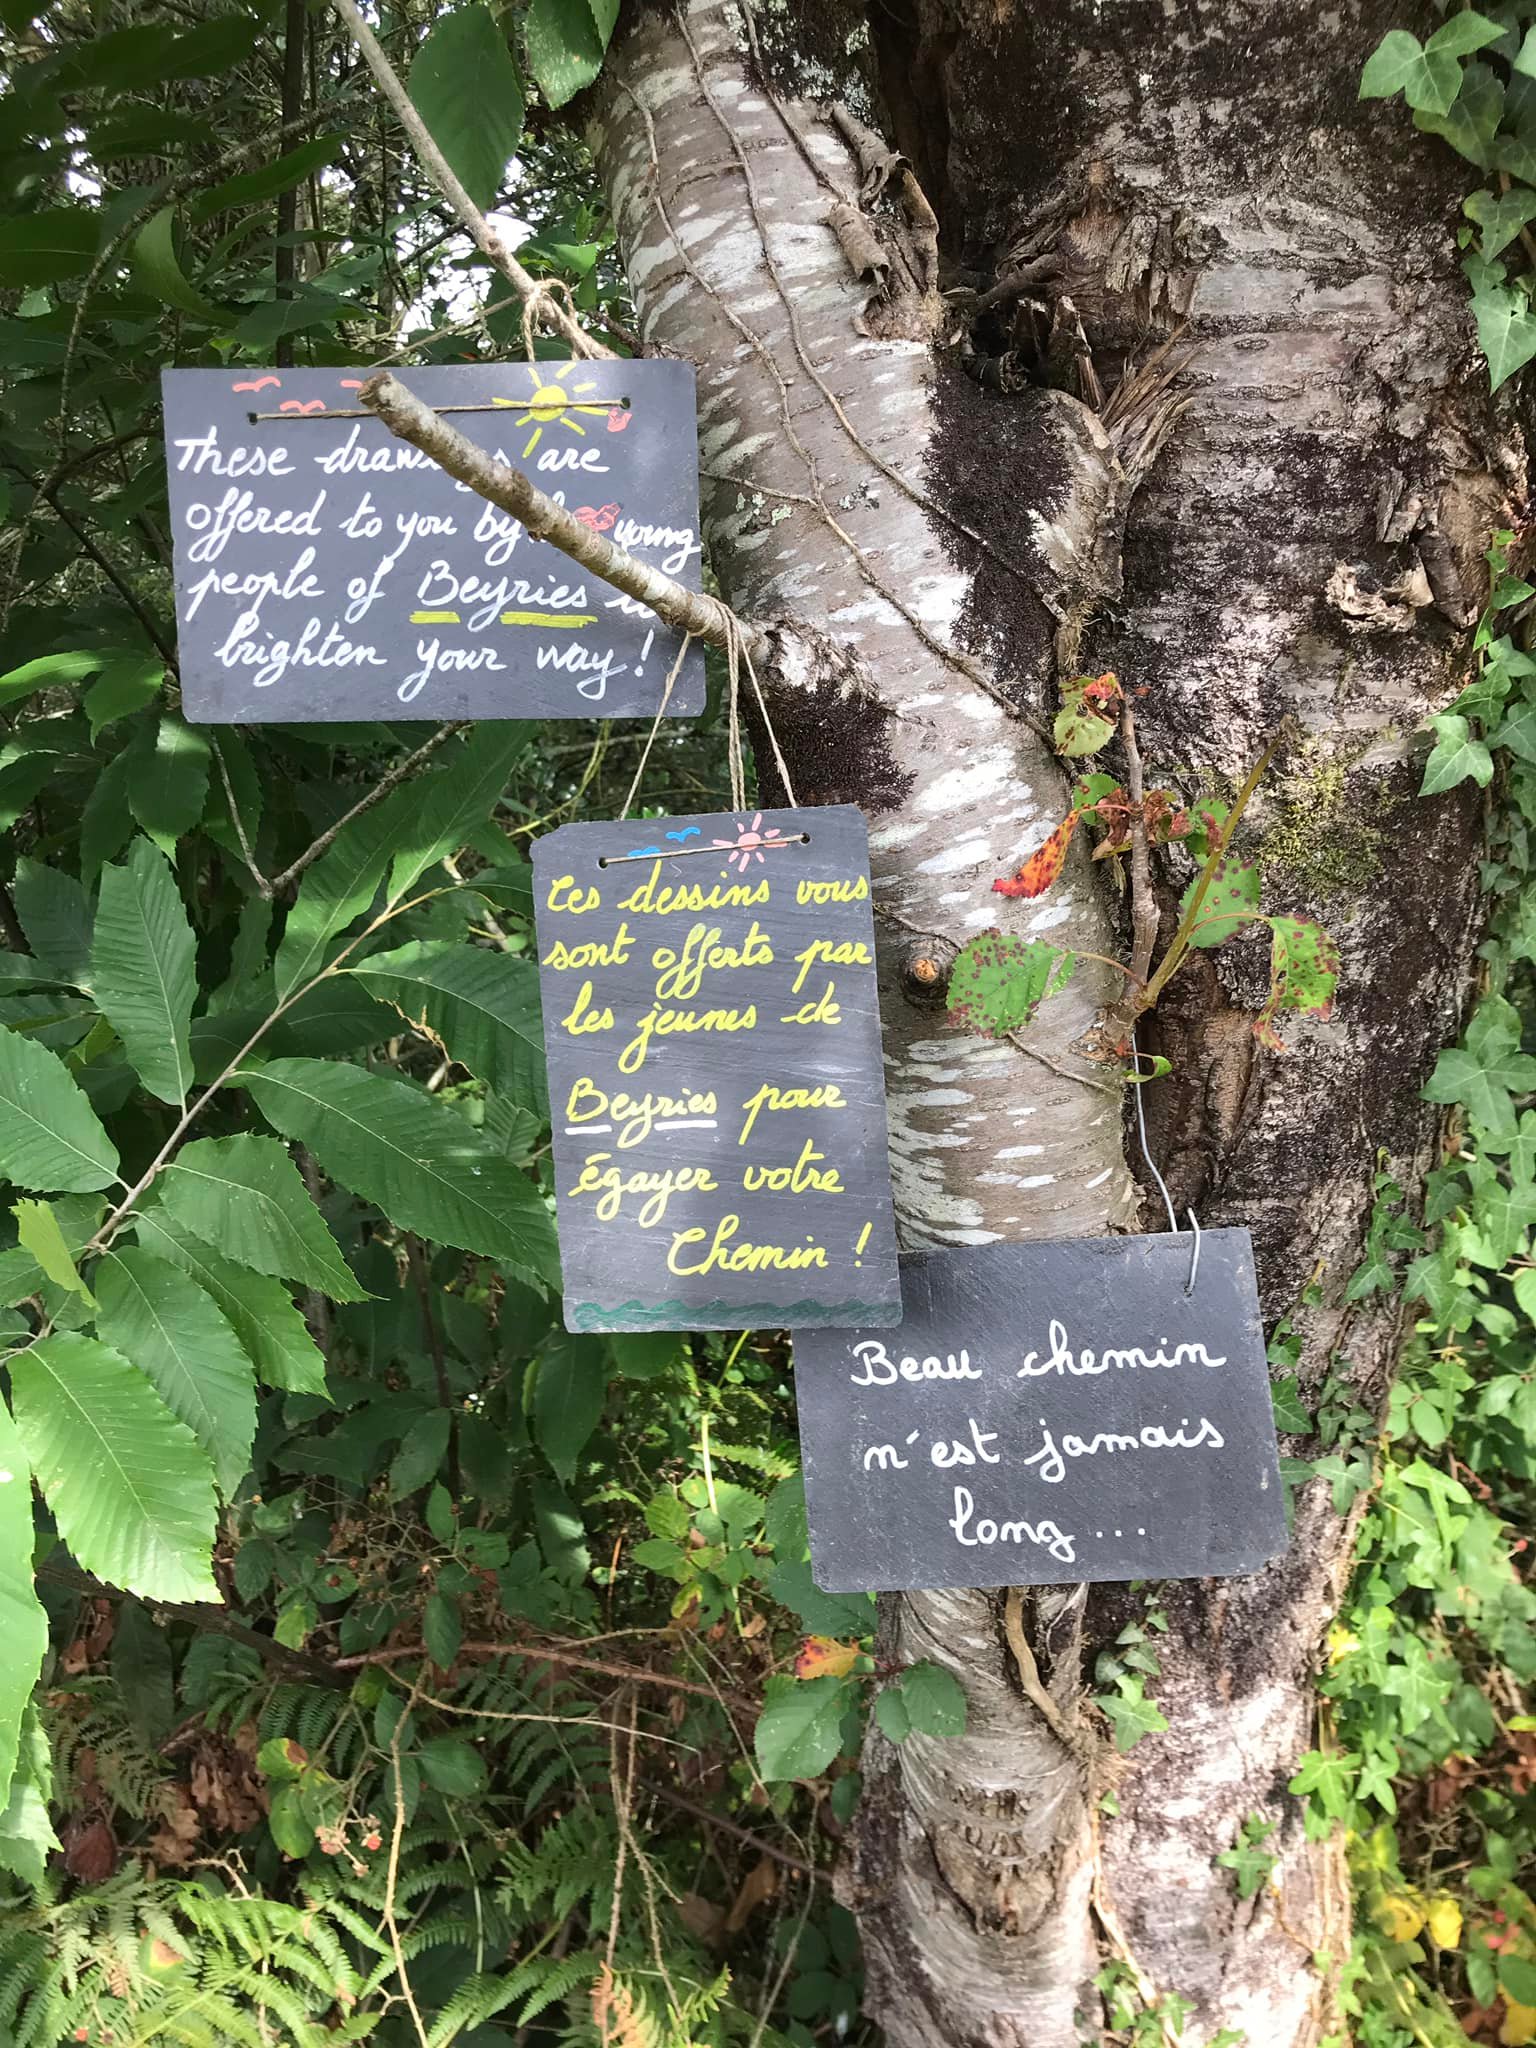 These drawings are
offered to you by the young
people of Beyries to
brighten your way !
Ces dessins vous
sont offerts par
les jeunes de
Beyries pour
égayer votre
Chemin !
Beau chemin
n'est jamais
long ...